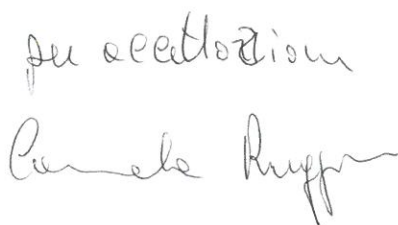 per accettazione
Carmela Rugg